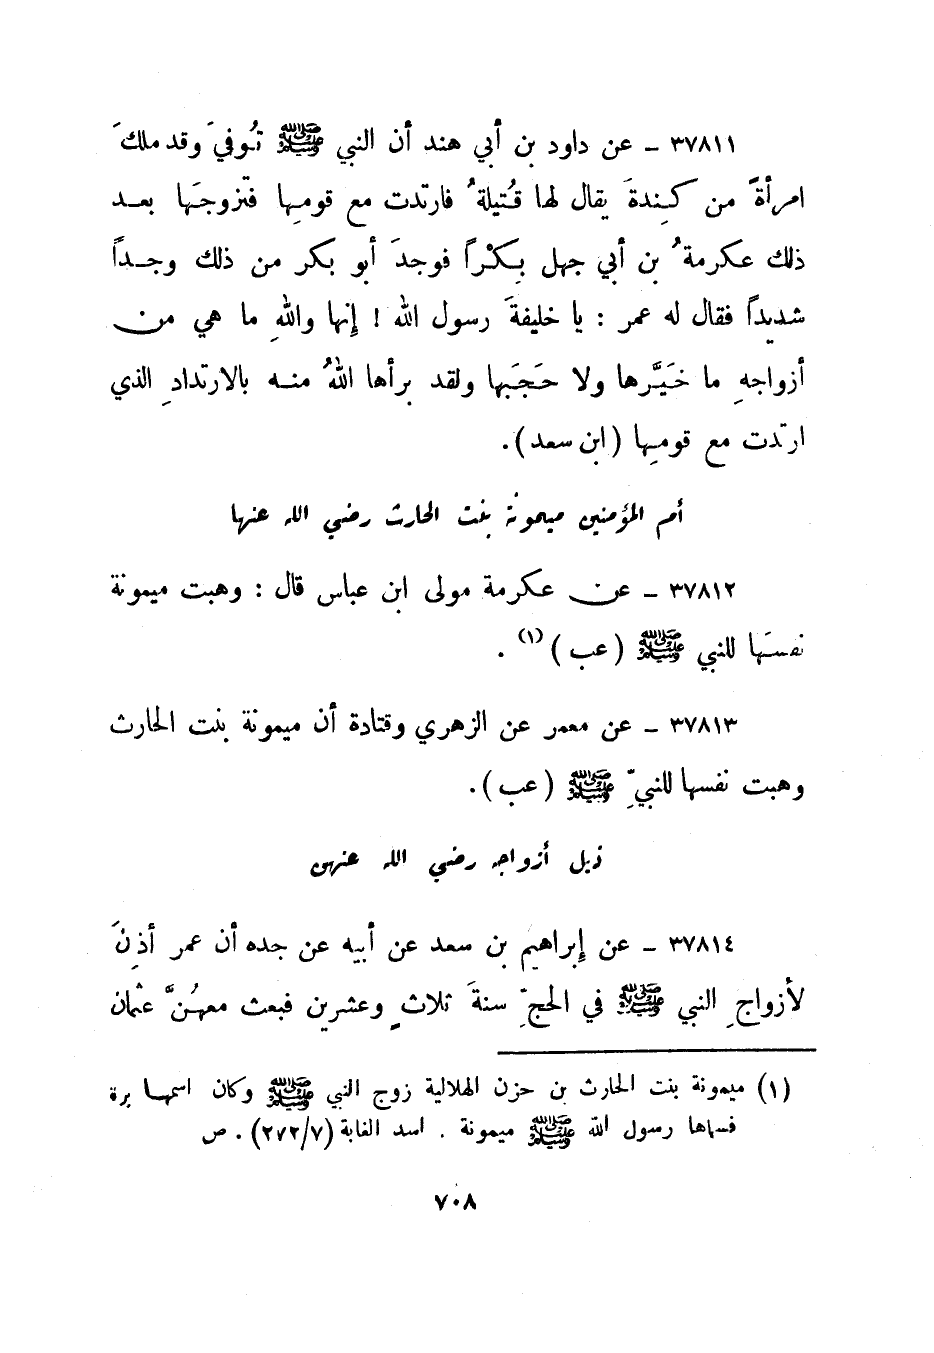 ٣٧٨١١ - عن داود بن أبي هند أن النبي ﷺ تُوفيَ وقد ملكَ
امرأةً من كِندةَ يقال لها قُتيلةُ فارتدت مع قومِها فتزوجَها بعد
ذلك عكرمةُ بن أبي جهل بِكْراً فوجدَ أبو بكر من ذلك وجداً
شديداً فقال له عمر : يا خليفةَ رسول الله ! إنها واللهِ ما هي من
أزواجهِ ما خَيَّرها ولا حَجَبها ولقد برأها اللهُ منه بالارتدادِ الذي
ارتدت مع قومِها (ابن سعد).
أم المؤمنين ميمونة بنت الحارث رضي الله عنها
٣٧٨١٢ - عن عكرمة مولى ابن عباس قال : وهبت ميمونة
نفسَها للنبي ﷺ (عب) (١) .
٣٧٨١٣ - عن معمر عن الزهري وقتادة أن ميمونة بنت الحارث
وهبت نفسها للنبيِّ ﷺ (عب).
ذيل أزواجه رضي الله عنهن
٣٧٨١٤ - عن إبراهيم بن سعد عن أبيه عن جده أن عمر أذِنَ
لأزواجِ النبي ﷺ في الحجِّ سنةَ ثلاثٍ وعشرين فبعث معهُنَّ عثمان
(١) ميمونة بنت الحارث بن حزن الهلالية زوج النبي ﷺ وكان اسمها برة
فسماها رسول الله ﷺ ميمونة . اسد الغابة (٢٧٢/٧) . ص
٧٠٨